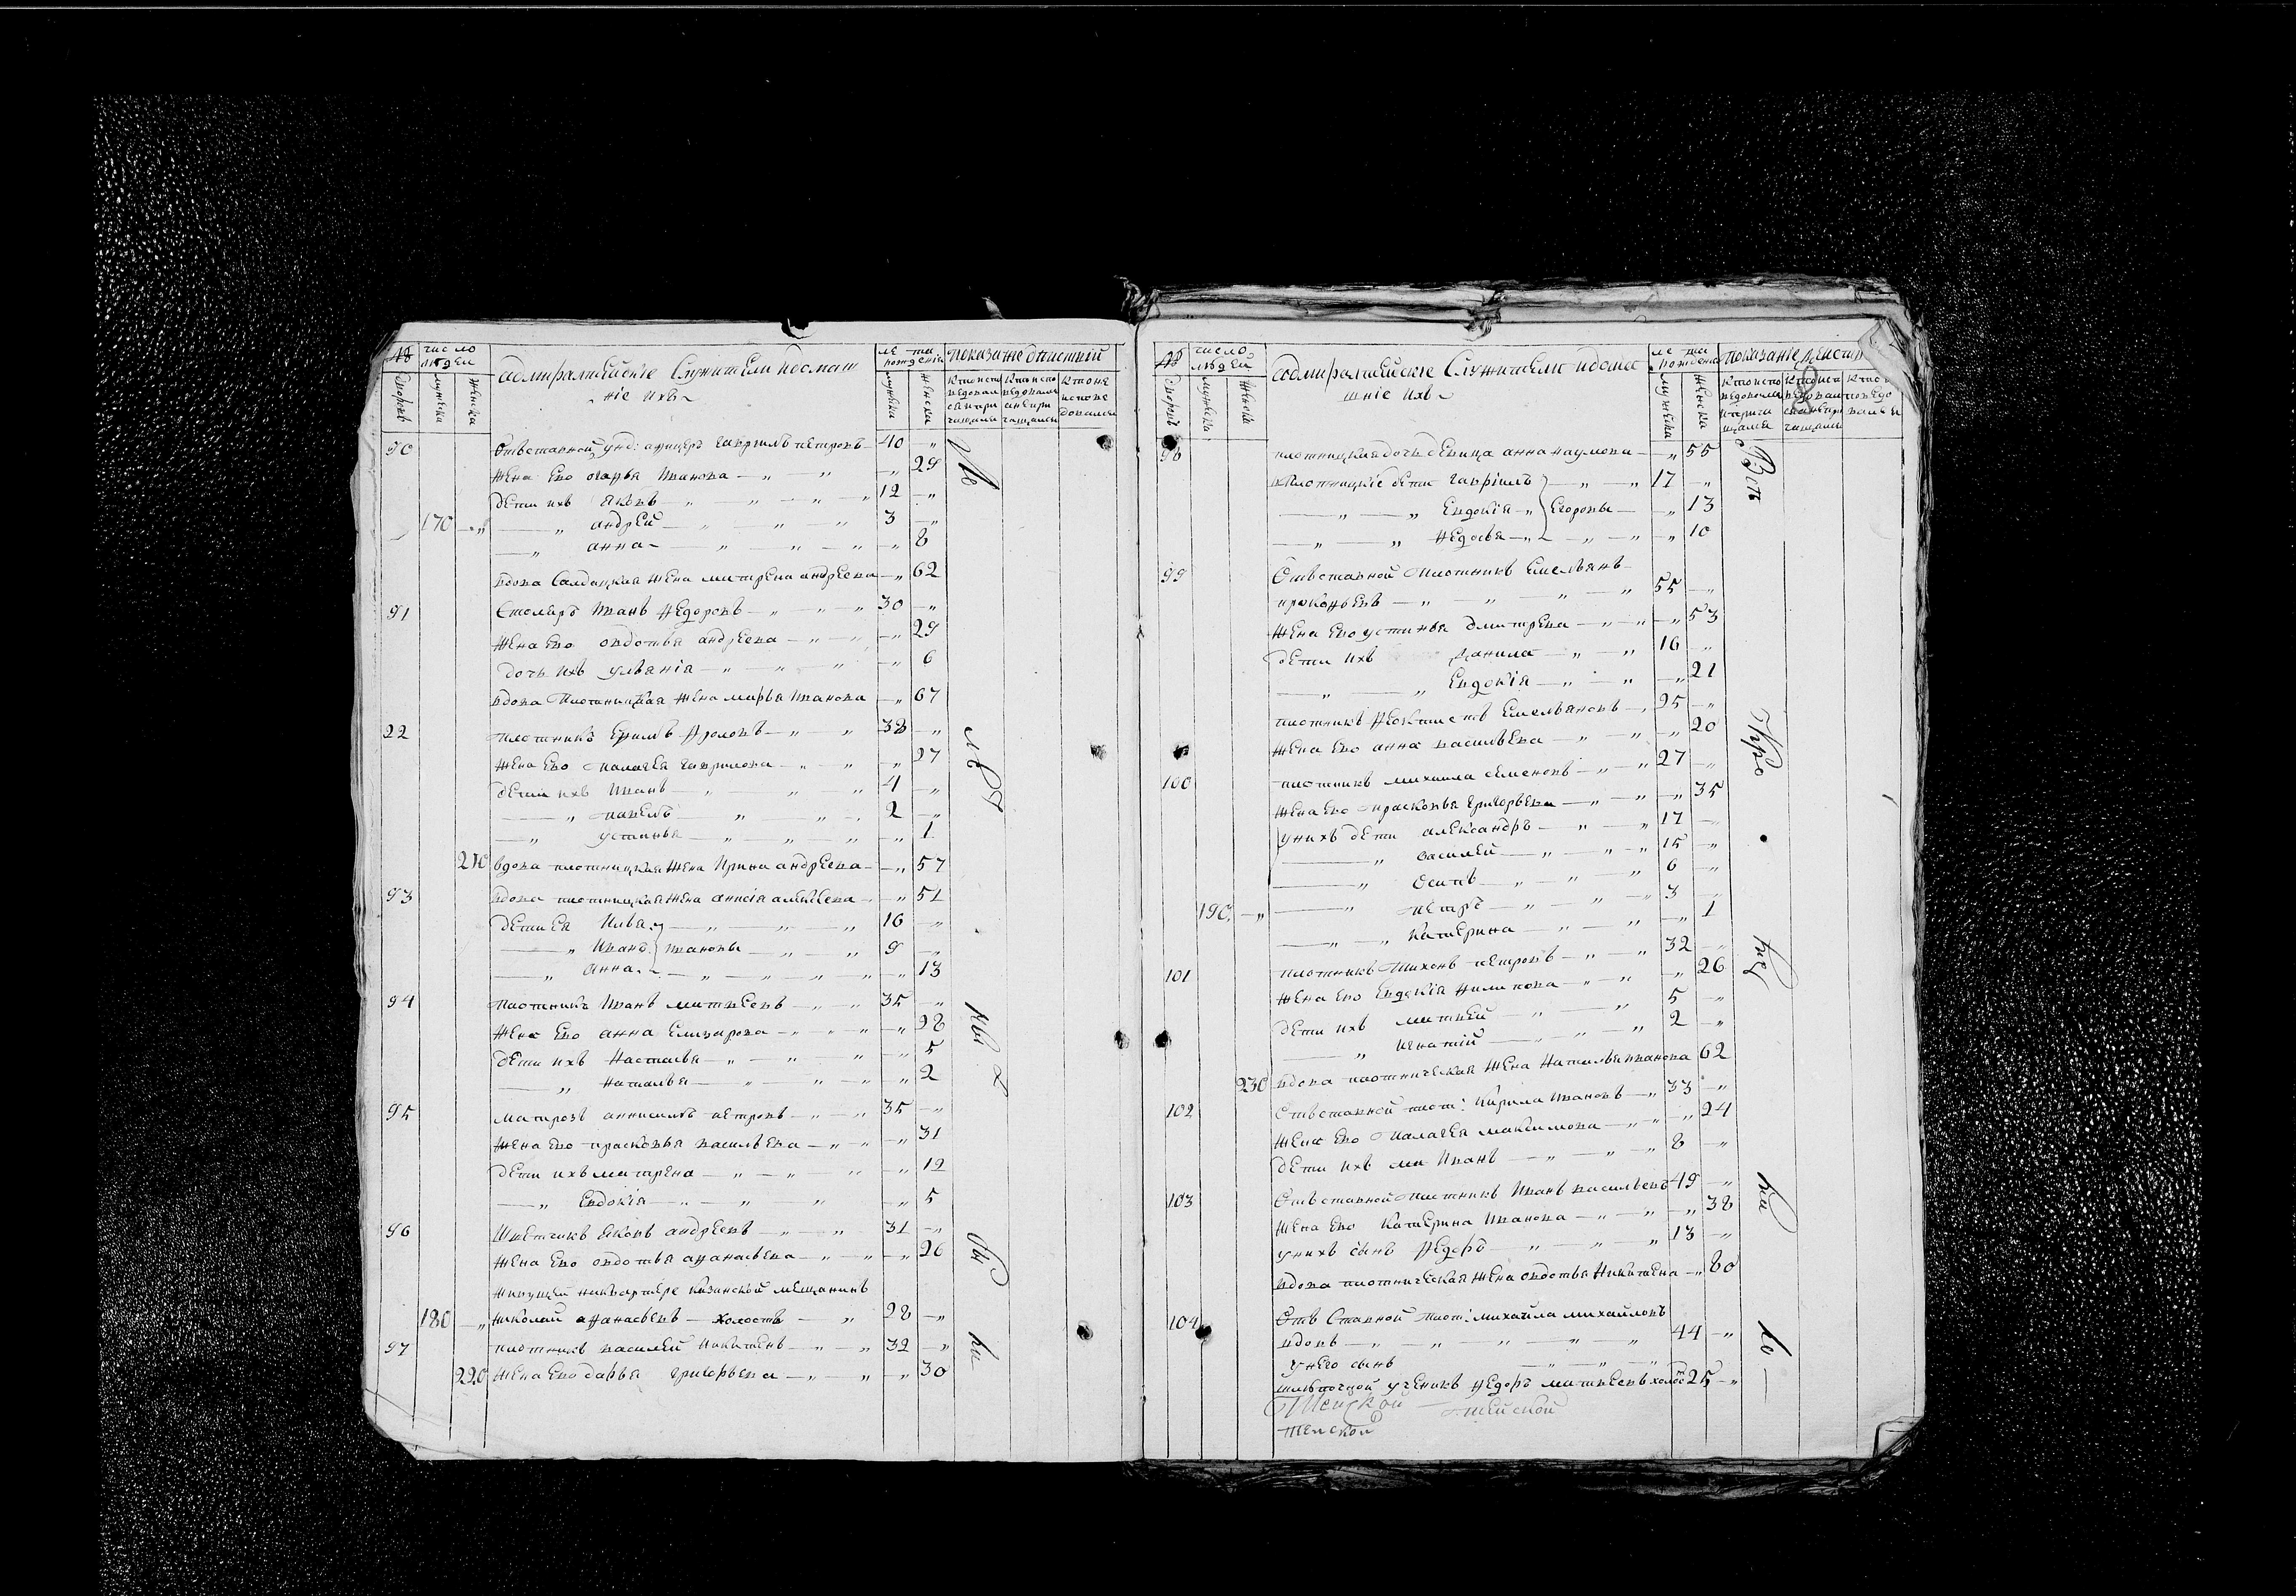 № число людей адмиралтейские служители и домаш ле та рождения показание действий
дворовъ мужеска женска ние ихъ мужеска женска
90 Отъставной унд: афицеръ Гаврилъ Петровъ 40 "
Жена ево Дарья Иванова " 29
Дети ихъ Яковъ 12 "
170 " Андрей 3 "
" Анна " 8
Вдова салдацкая жена Матрена Андреева " 62
91 Столяръ Иванъ Федоровъ 30 "
Жена ево Овдотья Андреева " 29
Дочь ихъ Ульяніа " 6
Вдова плотницкая жена Марья Иванова " 67
22 плотникъ Ефимъ Фроловъ 38 "
Жена ево Палагея Гаврилова " 27
Дети ихъ Иванъ 4 "
" Павелъ 2 "
" Устинья " 1
210 вдова плотницкая жена Ирина Андреева " 57
93 Вдова плотницкая жена Аннсія Алексеева " 51
Дети ея Илья 16 "
" Иванъ Ивановы 9 "
" Анна " 13
94 Плотникъ Иванъ Матвеевъ 35 "
Жена ево Анна Елизарова " 28
Дети ихъ Настасья " 5
" Наталья " 2
95 Матрозъ Аннсимъ Петровъ 35 "
Жена ево Прасковья Васильева " 31
Дети ихъ Матрена " 12
" Евдокія " 5
96 Шметчикъ Яковъ Андреевъ 31 "
Жена ево Овдотья Афанасьева " 26
Живущей на квартере Казанской мещанинъ
180 " Николай Афанасьевъ холостъ " 28 "
97 плотникъ Василей Никитенъ 32 "
220 Жена ево Дарья Григорьева " 30
№ число людей адмиралтейские служители и домаш ле та рождения показание действ
дворовъ мужеска женска шніе ихъ мужеска женска
8
98 плотницкая дочь девица Анна Наумова " 55
Плотницкіе дети Гавріилъ 17 "
" Евдокія Егоровы " 13
" Федосья " 10
99 Отъставной плотникъ Емельянъ
Прокофьевъ 55 "
Жена ево Устинья Дмитрева " 53
Дети ихъ Данила 16 "
" Евдокія " 21
плотникъ Феоктистъ Емельяновъ 25 "
Жена ево Анна Васильева " 20
100 плотникъ Михаила Семеновъ 27 "
Жена ево Прасковья Григорьева " 35
у нихъ дети Александръ 17 "
" Василей 15 "
" Осипъ 6 "
190 " Петръ 3 "
" Катерина " 1
101 плотникъ Тихонъ Петровъ 32 "
Жена ево Евдокія Филипова " 26
Дети ихъ Матвей 5 "
" Игнатій 2 "
230 Вдова плотническая жена Наталья Иванова 62
102 Отъставной плот: Кирила Ивановъ 33 "
Жена ево Палагея Максимова " 24
Дети ихъ Иванъ 8 "
103 Отъставной плотникъ Иванъ Васильевъ 49 "
Жена ево Катерина Иванова " 38
у нихъ сынъ Федоръ 13 "
Вдова плотническая жена Овдотья Никитена " 80
104 Отъ Ставной плот: Михайла Михайловъ
вдовъ 44 "
у него сынъ
ученикъ Федоръ Матвеевъ холос 25 "